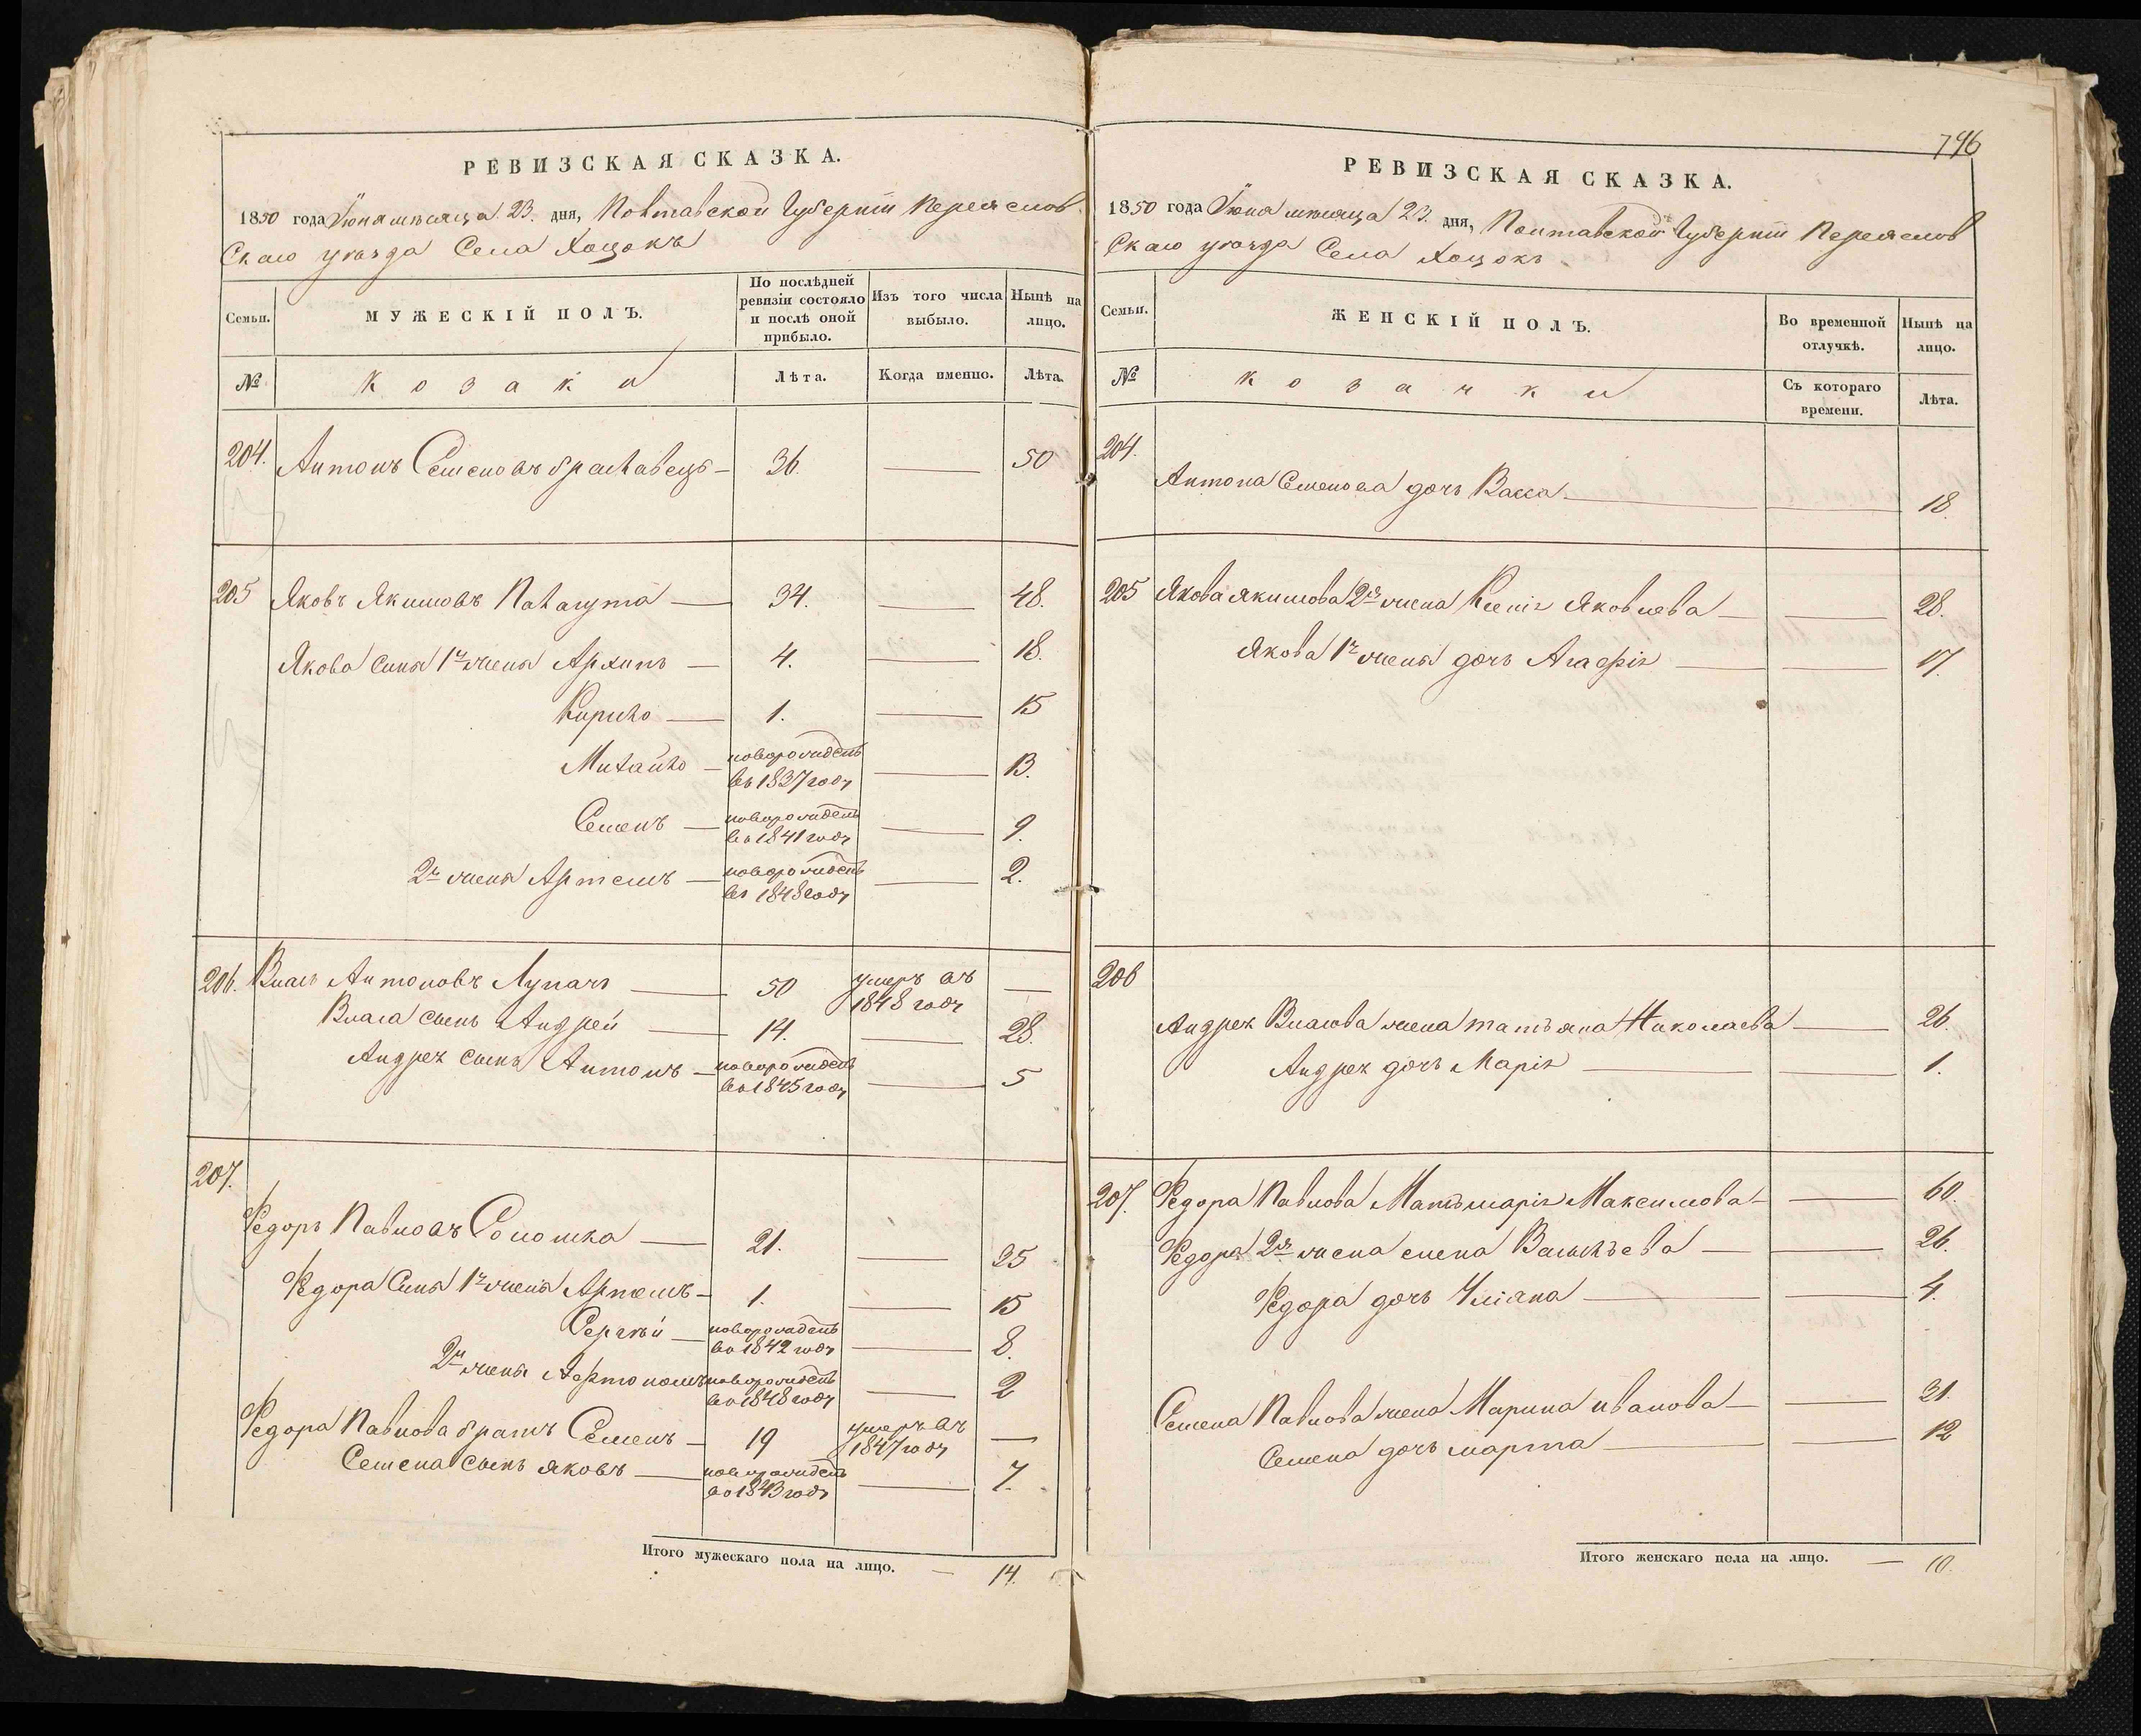 РЕВИЗСКАЯ СКАЗКА.
1850 года Іюня мѣсяца 23. дня, Полтавской Губерніи Переяслов
скаго уѣзда Села Хоцокъ
Семьи.
МУЖЕСКІЙ ПОЛЪ.
По послѣдней ревизіи состояло и послѣ оной прибыло.
Изъ того числа выбыло.
Нынѣ на лицо.
№
козаки
Лѣта.
Когда именно.
Лѣта.
204. Антонъ Семеновъ 36. — 50
205 Яковъ Якимовъ — 34. — 48.
Якова сыня 1й жены Архипъ — 4. — 18.
Кирило — 1. — 15
Михайло — новорожденъ въ 1837 году — 13.
Семенъ — новорожденъ во 1841 году — 9.
2й жены Артемъ — новорожденъ въ 1848 году — 2.
206. Власъ Антоновъ Лупачъ — 50 умеръ въ 1848 году —
Власа сынъ Андрей — 14. — 28.
Андрея сынъ Антонъ — новорожденъ во 1845 году — 5
207.
Федоръ Павловъ Соломка — 21. — 25
Федора сыня 1й жены Артемъ — 1. — 15
Сергѣй — новорожденъ во 1842 году — 8.
2й жены новорожденъ во 1848 году — 2
Федора Павлова братъ Семенъ — 19 умеръ въ 1847 году —
Семена сынъ яковъ — новорожденъ во 1843 году — 7.
Итого мужескаго пола на лицо. — 14.
796
РЕВИЗСКАЯ СКАЗКА.
1850 года Іюня мѣсяца 23. дня, Полтавской Губерніи Переяслов
скаго уѣзда Села Хоцокъ
Семьи.
ЖЕНСКІЙ ПОЛЪ.
Во временной отлучкѣ.
Нынѣ на лицо.
№
козачки
Съ котораго времени.
Лѣта.
204.
Антона Семенова дочь Васса — — 18.
205 Якова якимова 2я жена Ксенія Яковлева — — 28.
Якова 1й жены дочь Агафія — — 17.
206
Андрея Власова жена татьяна Николаева — 26.
Андрея дочь Марія — — 1.
207. Федора Павлова Мать марія Максимова — — 60.
Федора 2я жена елена Васильева — — 26.
Федора дочь Уліяна — — 4.
Семена Павлова жена Марина иванова — — 31.
Семена дочь марта — — 12
Итого женскаго пола на лицо. — 10.